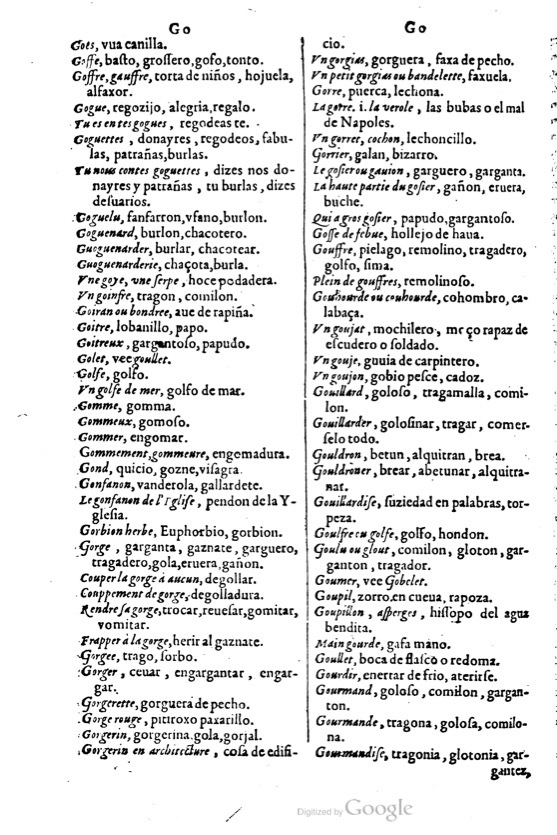 Go
Goes, vua canilla.
Goffe, basto, grossero, gofo, tonto.
Goffre, gauffre, torta de niños, hojuela,
alfaxor.
Gogue, regozijo, alegria, regalo.
Tu es en tes gogues, regodeas te.
Goguettes, donayres, regodeos, fabu-
las, patrañas, burlas.
Tu nous contes goguettes, dizes nos do-
nayres y patrañas, tu burlas, dizes
desuarios.
Goguelu, fanfarron, vfano, burlon.
Goguenard, burlon, chacotero.
Guoguenarder, burlar, chacotear.
Guoguenarderie, chaçota, burla.
Vne goye, vne serpe, hoce podadera.
Vn goinfre, tragon, comilon.
Goiran ou bondree, aue de rapiña.
Goitre, lobanillo, papo.
Goitreux, gargantoso, papudo.
Golet, vee goullet.
Golfe, golfo.
Vn golfe de mer, golfo de mar.
Gomme, gomma.
Gommeux, gomoso.
Gommer, engomar.
Gommement, gommeure, engemadura.
Gond, quicio, gozne, visagra.
Gonfanon, vanderola, gallardete.
Le gonfanon de l'Eglise, pendon de la Y-
glesia.
Gorbion herbe, Euphorbio, gorbion.
Gorge, garganta, gaznate, garguero,
tragadero, gola, eruera, gañon.
Couper la gorge à aucun, degollar.
Couppement de gorge, degolladura.
Rendre sa gorge, trocar, reuesar, gomitar,
vomitar.
Frapper à la gorge, herir al gaznate.
Gorgee, trago, sorbo.
Gorger, ceuar, engargantar, engar-
gar.
Gorgerette, gorguera de pecho.
Gorge rouge, pitiroxo paxarillo.
Gorgerin, gorgerina, gola, gorjal.
Gorgerin en architecture, cosa de edifi-
Go
cio.
Vn gorgias, gorguera, faxa de pecho.
Vn petit gorgias ou bandelette, faxuela.
Gorre, puerca, lechona.
La gorre. i. la verole, las bubas o el mal
de Napoles.
Vn gorret, cochon, lechoncillo.
Gorrier, galan, bizarro.
Le gosier ou gauion, garguero, garganta.
La haute partie du gosier, gañon, eruera,
buche.
Qui a gros gosier, papudo, gargantoso.
Gosse de febue, hollejo de haua.
Gouffre, pielago, remolino, tragadero,
golfo, sima.
Plein de gouffres, remolinoso.
Gouhourde ou couhourde, cohombro, ca-
labaça.
Vn goujat, mochilero, moço rapaz de
escudero o soldado.
Vn gouje, guuia de carpintero.
Vn goujon, gobio pesce, cadoz.
Gouillard, goloso, tragamalla, comi-
lon.
Gouillarder, golosinar, tragar, comer-
selo todo.
Gouldron, betun, alquitran, brea.
Gouldroner, brear, abetunar, alquitra-
nar.
Gouillardise, suziedad en palabras, tor-
peza.
Goulfre ou golfe, golfo, hondon.
Goulu ou glout, comilon, gloton, gar-
ganton, tragador.
Goumer, vee Gobelet.
Goupil, zorro, en cueua, rapoza.
Goupillon, asperges, hissopo del agua
bendita.
Main gourde, gafa mano.
Goullet, boca de flasco o redoma.
Gourdir, enertar de frio, aterirse.
Gourmand, goloso, comilon, gargan-
ton.
Gourmande, tragona, golosa, comilo-
na.
Gourmandise, tragonia, glotonia, gar-
gantez,
Digitized by Google